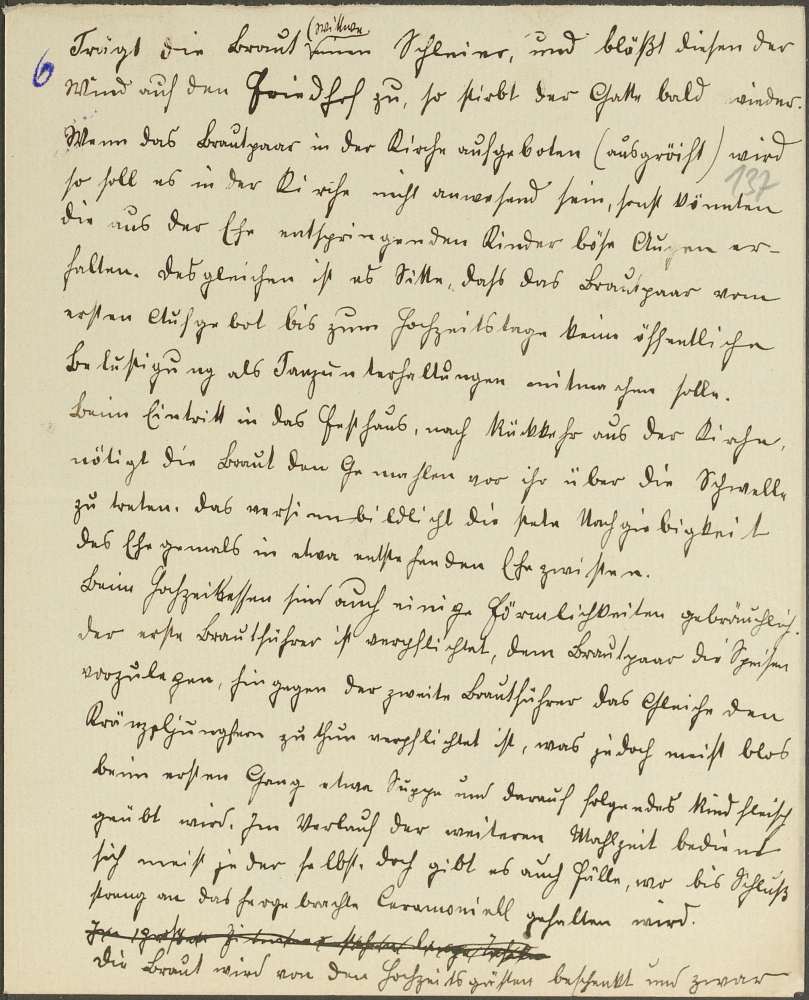 6
(Wittwe
Trägt die Braut einen Schleier, und bläßt diesen der
Wind auf den Friedhof zu, so stirbt der Gatte bald wieder.
Wenn das Brautpaar in der Kirche aufgeboten (ausgröift) wird
137
so soll es in der Kirche nicht anwesend sein, sonst könnten
die aus der Ehe entspringenden Kinder böse Augen er-
halten. Desgleichen ist es Sitte, daß das Brautpaar vom
ersten Aufgebot bis zum Hochzeitstage keine öffentliche
Belustigung als Tanzunterhaltungen mitmachen solle.
Beim Eintritt in das Festhaus, nach Rückkehr aus der Kirche,
nötigt die Braut den Gemahlen vor ihr über die Schwelle
zu treten. Das versinnbildlicht die stete Nachgiebigkeit
des Ehegemals in etwa entstehenden Ehezwisten.
Beim Hochzeitsessen sind auch einige Förmlichkeiten gebräuchlich.
Der erste Brautführer ist verpflichtet, dem Brautpaar die Speisen
vorzulegen, hingegen der zweite Brautführer das Gleiche den
Kränzeljungfern zu thun verpflichtet ist, was jedoch meist blos
beim ersten Gang etwa Suppe und darauf folgendes Rindfleisch
geübt wird. Im Verlauf der weiteren Mahlzeit bedient
sich meist jeder selbst. Doch gibt es auch Fälle, wo bis Schluß
streng an das hergebrachte Ceremoniell gehalten wird.
Die Braut wird von den Hochzeitsgästen beschenkt und zwar